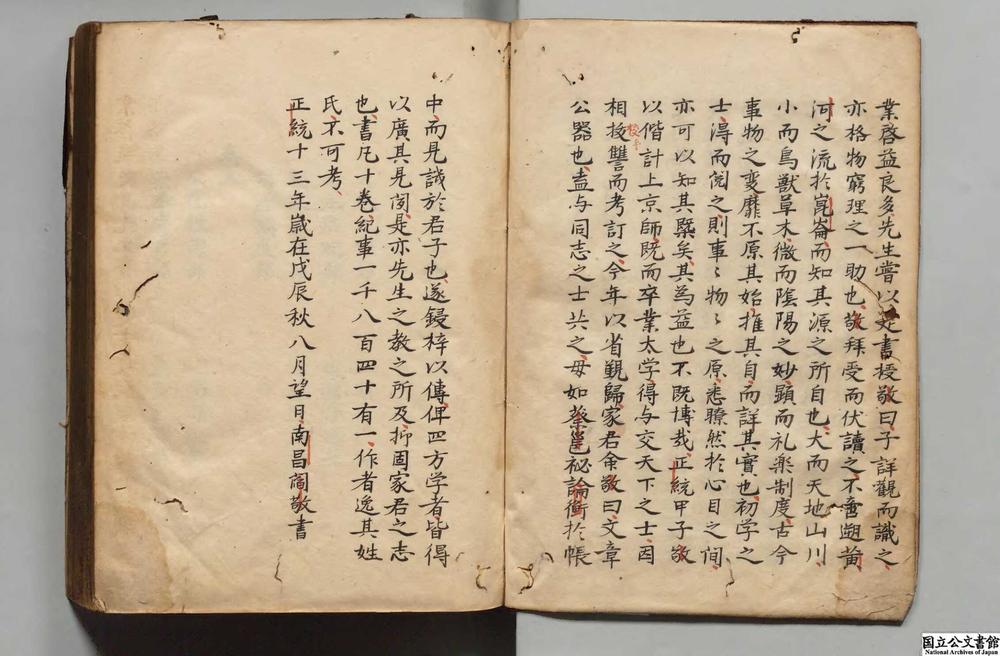 業啓益良多先生嘗以是書授敬曰子詳觀而識之
亦格物窮理之一助也敬拜受而伏讀之不啻遡黄
河之流於崑崙而知其源之所自也大而天地山川
小而鳥獣草木微而陰陽之妙顕而礼楽制度古今
事物之変靡不原其始推其自而詳其實也初学之
士得而閲之則事〻物〻之原悉瞭然於心目之间
亦可以知其槩矣其為益也不既博哉正統甲子敬
以偕計上京師既而卒業太学得与交天下之士因
相挍讐而考訂之今年以省覲歸家君命敬曰文章
公器也盍与同志之士共之毋如蔡邕祕論衡於帳
中而見誚於君子也遂鋟梓以傳俾四方学者皆得
以廣其見闻是亦先生之教之所及抑固家君之志
也書凡十卷紀事一千八百四十有一作者逸其姓
氏不可考
正統十三年歳在戊辰秋八月望日南昌閻敬書
国立公文書館
National Archives of Japan